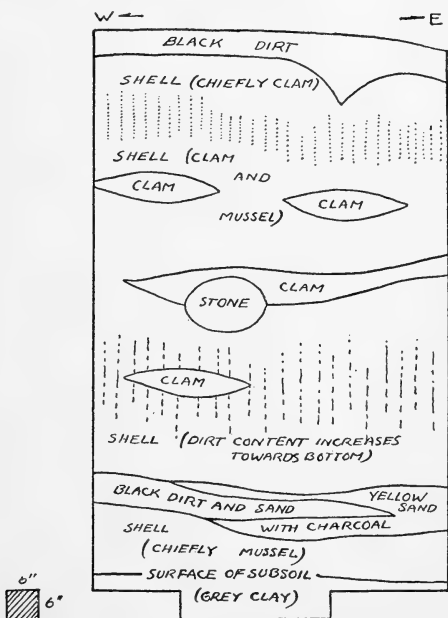 W E
BLACK DIRT
SHELL (CHIEFLY CLAM)
SHELL (CLAM
AND
MUSSEL)
CLAM
CLAM
CLAM
STONE
CLAM
SHELL (DIRT CONTENT INCREASES
TOWARDS BOTTOM)
BLACK DIRT AND SAND
YELLOW
SAND
WITH CHARCOAL
SHELL
(CHIEFLY MUSSEL)
SURFACE OF SUBSOIL
(GREY CLAY)
6"
6"